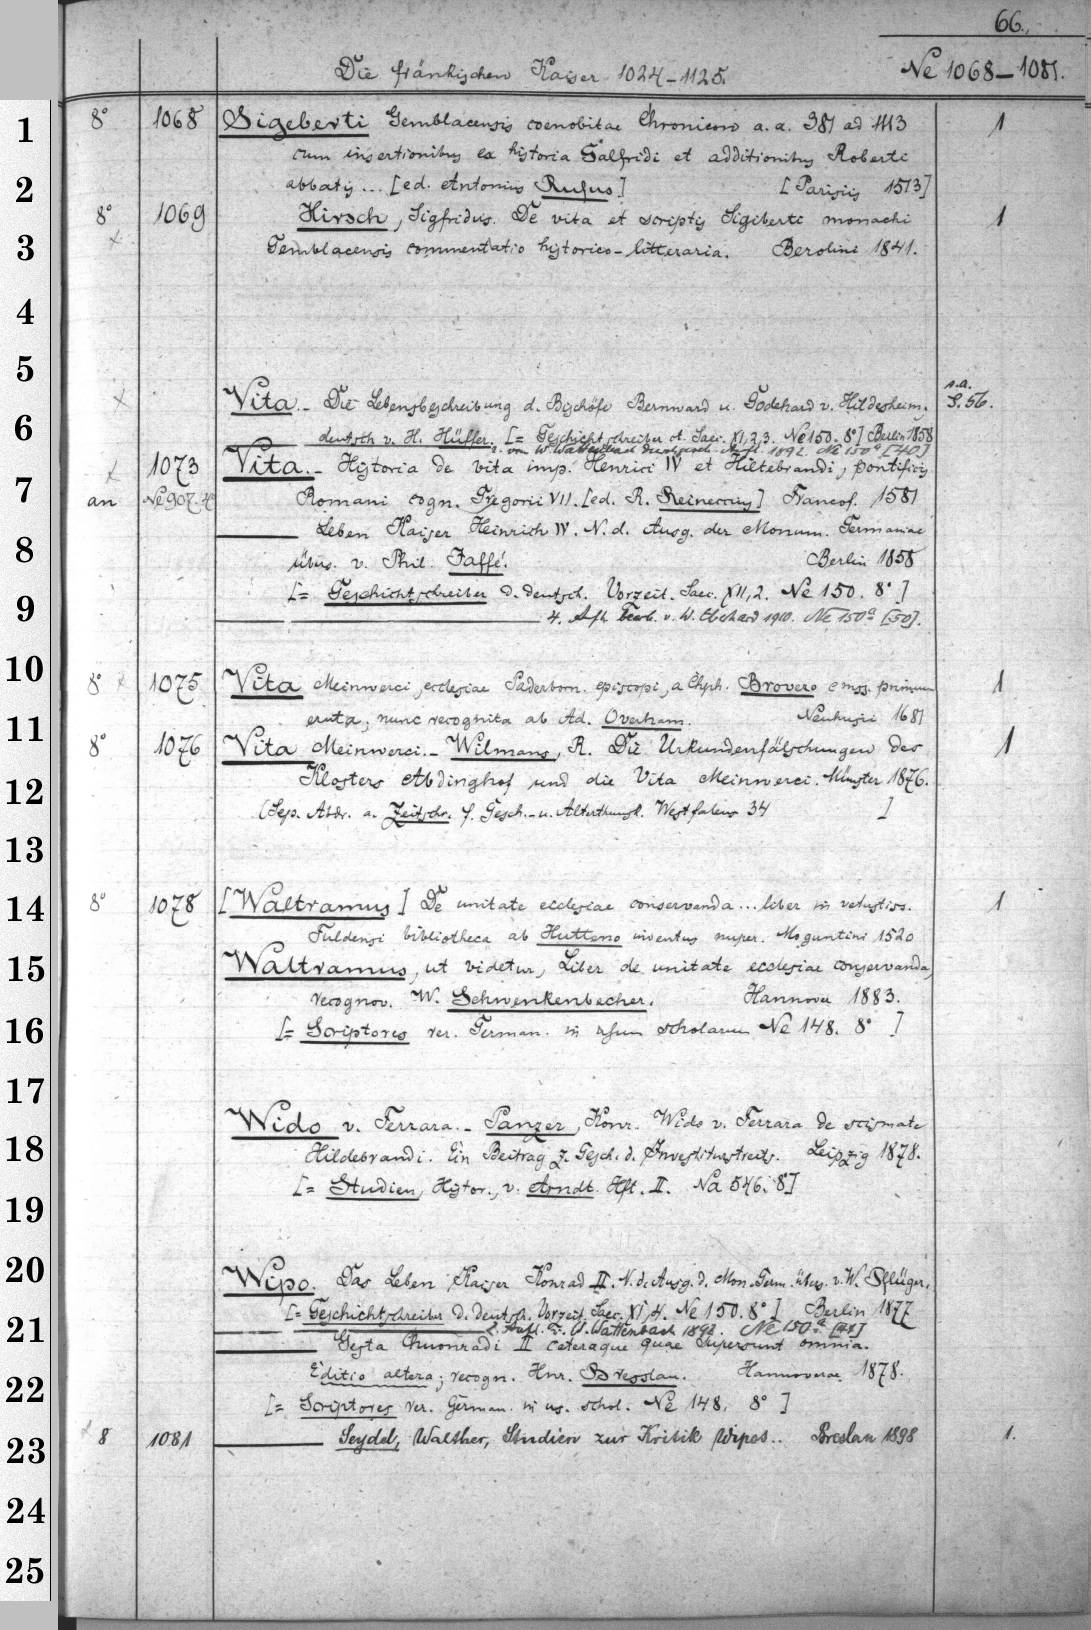 66.
Die fränkischen Kaiser 1024-1125. Ne 1068-1081.
1 8° 1068 Sigeberti Gemblacensis coenobitae Chronicon a. a. 381 ad 1113 1
cum insertionibus ex historia Galfridi et additionibus Roberti
2 abbatis ... [ed. Antonius Rufus] [Parisiis 1513]
8° 1069 Hirsch, Sigfridus. De vita et scriptis Sigiberti monachi 1
3 x Gemblacensis commentatio historico-litteraria. Berolini 1841.
4
5
x Vita - Die Lebensbeschreibung d. Bischöfe Bernward u. Godehard v. Hildesheim. s.a. S. 56.
6 deutsch v. H. Hüffer. [= Geschichtschreiber d. Saec. XI,2,3. Ne 150. 8°] Berlin 1858
v. W. Wattenbach Aufl. 1892. Ne 150a [40]
x 1073 Vita. - Historia de vita imp. Henrici IV et Hiltebrandi, pontificis
7 an Ne 907. 4° Romani cogn. Gregorii VII. [ed. R. Reineccius] Francof. 1581
8 Leben Kaiser Heinrich IV. N. d. Ausg. der Monum. Germaniae
übers. v. Phil. Jaffé. Berlin 1858
9 [= Geschichtschreiber d. deutsch. Vorzeit. Saec. XII,2. Ne 150. 8°]
4. Afl. bearb. v. W. Eberhard 1910. Ne 150a [50].
10 8° x 1075 Vita Meinwerci, ecclesiae Paderborn. episcopi, a Chph. Brovero e mss. primum 1
11 eruta, nunc recognita ab Ad. Overham. Neuhusii 1681
8° 1076 Vita Meinwerci. - Wilmans, R. Die Urkundenfälschungen des 1
12 Klosters Abdinghof und die Vita Meinwerci. Münster 1876.
(Sep. Abdr. a. Zeitschr. f. Gesch.- u. Alterthumsk. Westfalens 34 ]
13
14 8° 1078 [Waltramus] De unitate ecclesiae conservanda ... liber in vetustiss. 1
Fuldensi bibliotheca ab Hutteno inventus nuper. Moguntini 1520
15 Waltramus, ut videtur, Liber de unitate ecclesiae conservanda,
recognov. W. Schwenkenbecher. Hannover 1883.
16 [= Scriptores rer. German. in usum scholarum Ne 148. 8° ]
17
Wido v. Ferrara. - Panzer, Konr. Wido v. Ferrara de scismate
18 Hildebrandi. Ein Beitrag z. Gesch. d. Investiturstreits. Leipzig 1878.
[= Studien, Histor., v. Arndt. Hft. II. Na 546. 8°]
19
20 Wipo. Das Leben Kaiser Konrad II. N. d. Ausg. d. Mon. Germ. übers. v. W. Pflüger.
[= Geschichtschreiber d. deutsch. Vorzeit. Saec. XI,4. Ne 150. 8°] Berlin 1877
21 2. Aufl. v. W. Wattenbach 1892. Ne 150a [41]
Gesta Chuonradi II ceteraque quae supersunt omnia.
22 Editio altera; recogn. Hnr. Bresslau. Hannoverae 1878.
[= Scriptores rer. German. in us. schol. Ne 148. 8° ]
23 8 1081 Seydel, Walther, Studien zur Kritik Wipos.. Breslau 1898 1.
24
25